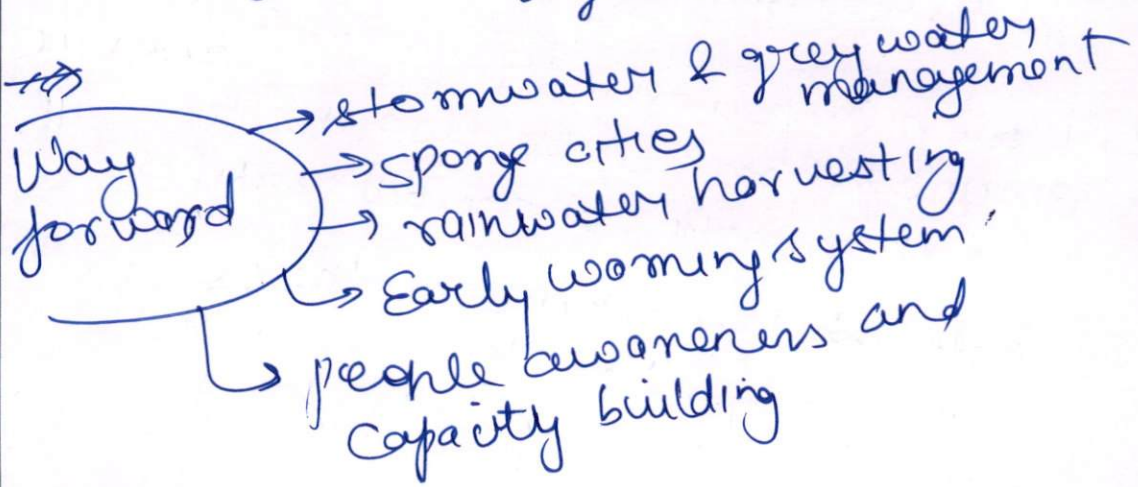 Way
forward
→ stormwater & grey water
management
→ sponge cities
→ rainwater harvesting
→ Early warning system
→ people awareness and
capacity building